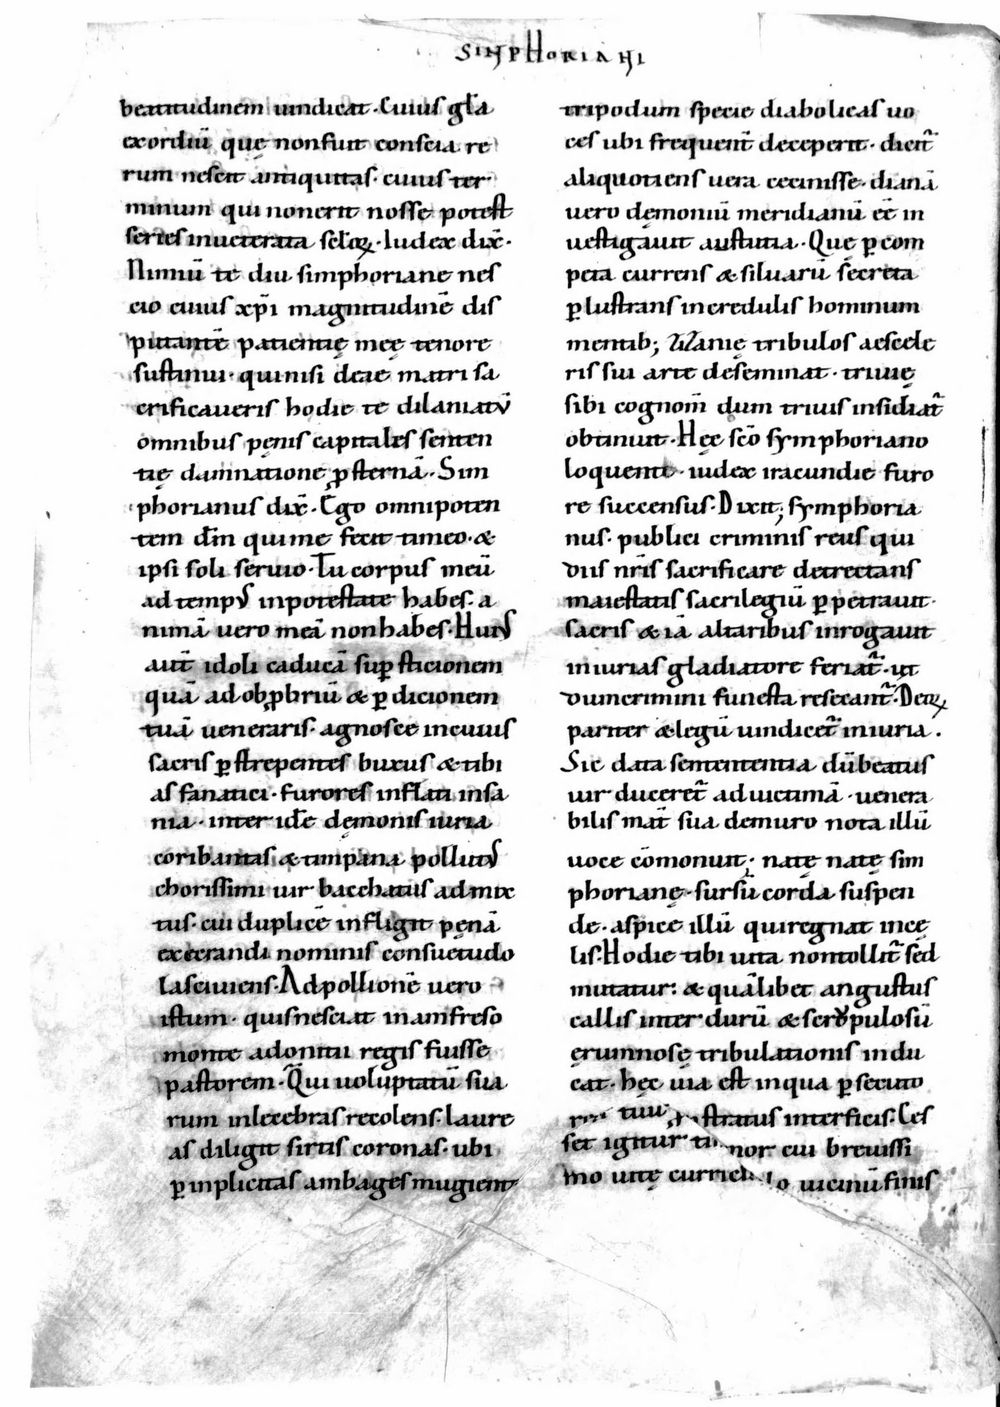 SIMPHORIANI
beatitudinem uindicat. Cuius gl̄a
exordiū quę non fuit conscia re
rum nescit antiquitas. cuius ter
minum qui nonerit nosse potest
series inueterata scl̄oꝝ. Iudex dix̄.
Nimiū te diu simphoriane nes
cio cuius xp̄i magnitudinē dis
putantē patientię meę tenore
sustinui. qui nisi deae matri sa
crificaueris hodie te dilaniatū
omnibus pęnis capitales senten
tię damnatione ꝓsternā. Sim
phorianus dix̄. Ego omnipoten
tem dm̄ qui me fecit timeo. &
ipsi soli seruio. Tu corpus meū
ad tempꝰ in potestate habes. a
nimā uero meā non habes. Huiꝰ
aut̄ idoli caducā suꝑsticionem
quā ad obꝓbriū & ꝑdicionem
tuā ueneraris. agnosce in cuius
sacris ꝑstrepentes buxus & tibi
as fanatici. furores inflati insa
nia. inter idē dęmonis iuria
coribantas & timpana pollutꝰ
chorissimi uir bacchatus admix
tus. cui duplicē infligit pęnā
execrandi nominis consuetudo
lasciuiens. Adpollionē uero
istum. quis nesciat in anfreso
monte adonitii regis fuisse
pastorem. Qui uoluptatū sua
rum inlecebras recolens. laure
as diligit sirtis coronas. ubi
ꝑ inplicitas ambages mugient
tripodum specie diabolicas uo
ces ubi frequent̄ decepit. dicit̄
aliquotiens uera cecinisse. dianā
uero dęmoniū meridianū eē in
uestigauit austutia. Quę ꝑ com
peta currens & siluarū secreta
ꝑlustrans incredulis hominum
mentib; Zizanię tribulos aescele
ris sui arte deseminat. triuię
sibi cognom̄ dum triuis insidiat̄
obtinuit. Hęc sc̄o symphoriano
loquente. iudex iracundie furo
re succensus. Dixit; symphoria
nus. publici criminis reus qui
diis nr̄is sacrificare detrectans
maiestatis sacrilegiū ꝑpetrauit.
sacris & iā altaribus inrogauit
iniurias gladiatore feriat̄. ut
dum crimini funesta resecant̄. Deoꝝ
pariter & legū uindicet̄ iniuria.
Sic data sentententia dū beatus
uir duceret̄ ad uictimā. uenera
bilis mat̄ sua de muro nota illū
uoce cōmonuit; natę natę sim
phorianę. sursū corda suspen
de. aspice illū qui regnat in cę
lis. Hodie tibi uita non tollit̄ sed
mutatur: & quālibet angustus
callis inter durū & scrupulosū
ęrumnosę tribulationis indu
cat. hęc uia est in qua ꝑsecuto
tuus prostratus interficis. Ces
set igitur timor cui breuissi
mo uitę curriculo uicinū finis